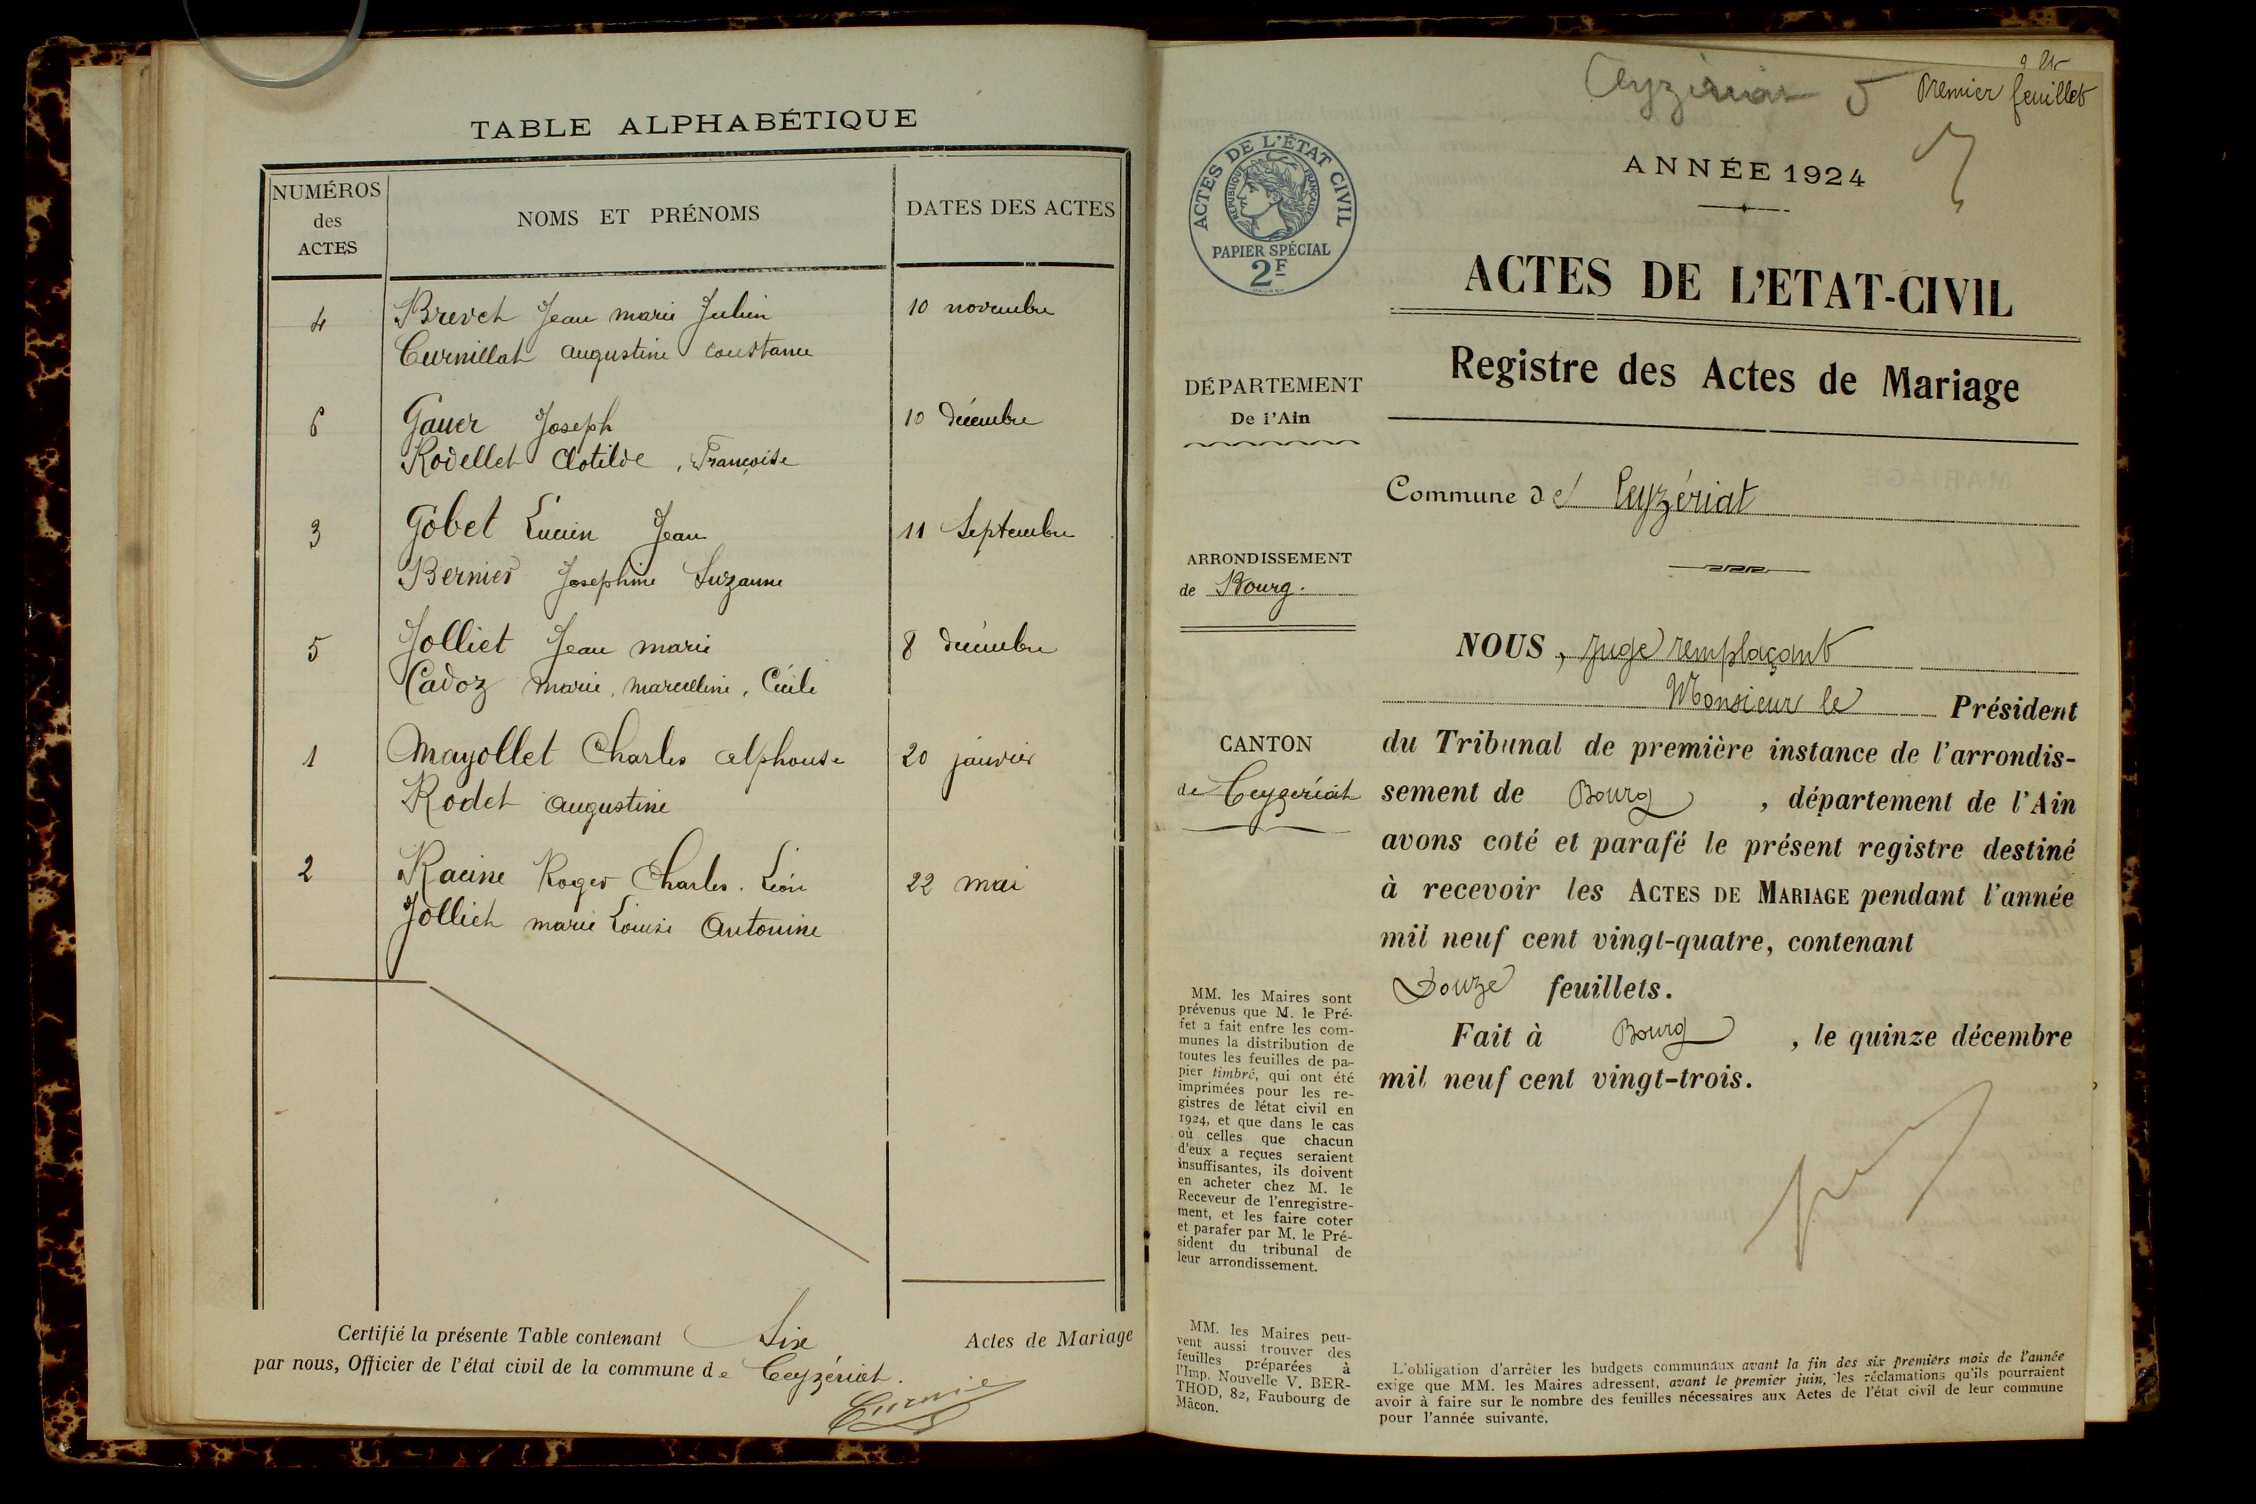 TABLE ALPHABÉTIQUE
NUMÉROS
des
ACTES
NOMS ET PRÉNOMS
DATES DES ACTES
4
Brevet Jean marie Julien
10 novembre
Curnillat augustine constance
6
Gauer Joseph
10 décembre
Rodellet Clotilde, Françoise
3
Gobet Lucien Jean
11 Septembre
Bernier Josephine Suzanne
5
Jolliet Jean marie
8 décembre
Cadoz marie, marcelline, Cécile
1
Mayollet Charles alphonse
20 janvier
Rodet augustine
2
Racine Roger Charles. Léon
22 mai
Jolliet marie Louise Antonine
Certifié la présente Table contenant Six Actes de Mariage
par nous, Officier de l'état civil de la commune de Ceyzériat.
Ceyzériat 5
Premier feuillet
ACTES DE L'ÉTAT CIVIL
RÉPUBLIQUE FRANÇAISE
PAPIER SPÉCIAL
2F
ANNÉE 1924
ACTES DE L'ETAT-CIVIL
Registre des Actes de Mariage
DÉPARTEMENT
De l'Ain
Commune de Ceyzériat
ARRONDISSEMENT
de Bourg.
CANTON
de Ceyzeriat
NOUS, Juge remplaçant
Monsieur le Président
du Tribunal de première instance de l'arrondis-
sement de Bourg, département de l'Ain
avons coté et parafé le présent registre destiné
à recevoir les ACTES DE MARIAGE pendant l'année
mil neuf cent vingt-quatre, contenant
Douze feuillets.
Fait à Bourg, le quinze décembre
mil neuf cent vingt-trois.
MM. les Maires sont
prévenus que M. le Pré-
fet a fait entre les com-
munes la distribution de
toutes les feuilles de pa-
pier timbré, qui ont été
imprimées pour les re-
gistres de l'état civil en
1924, et que dans le cas
où celles que chacun
d'eux a reçues seraient
insuffisantes, ils doivent
en acheter chez M. le
Receveur de l'enregistre-
ment, et les faire coter
et parafer par M. le Pré-
sident du tribunal de
leur arrondissement.
MM. les Maires peu-
vent aussi trouver des
feuilles préparées à
l'Imp. Nouvelle V. BER-
THOD, 82, Faubourg de
Mâcon.
L'obligation d'arrêter les budgets communaux avant la fin des six premiers mois de l'année
exige que MM. les Maires adressent, avant le premier juin, les réclamations qu'ils pourraient
avoir à faire sur le nombre des feuilles nécessaires aux Actes de l'état civil de leur commune
pour l'année suivante.